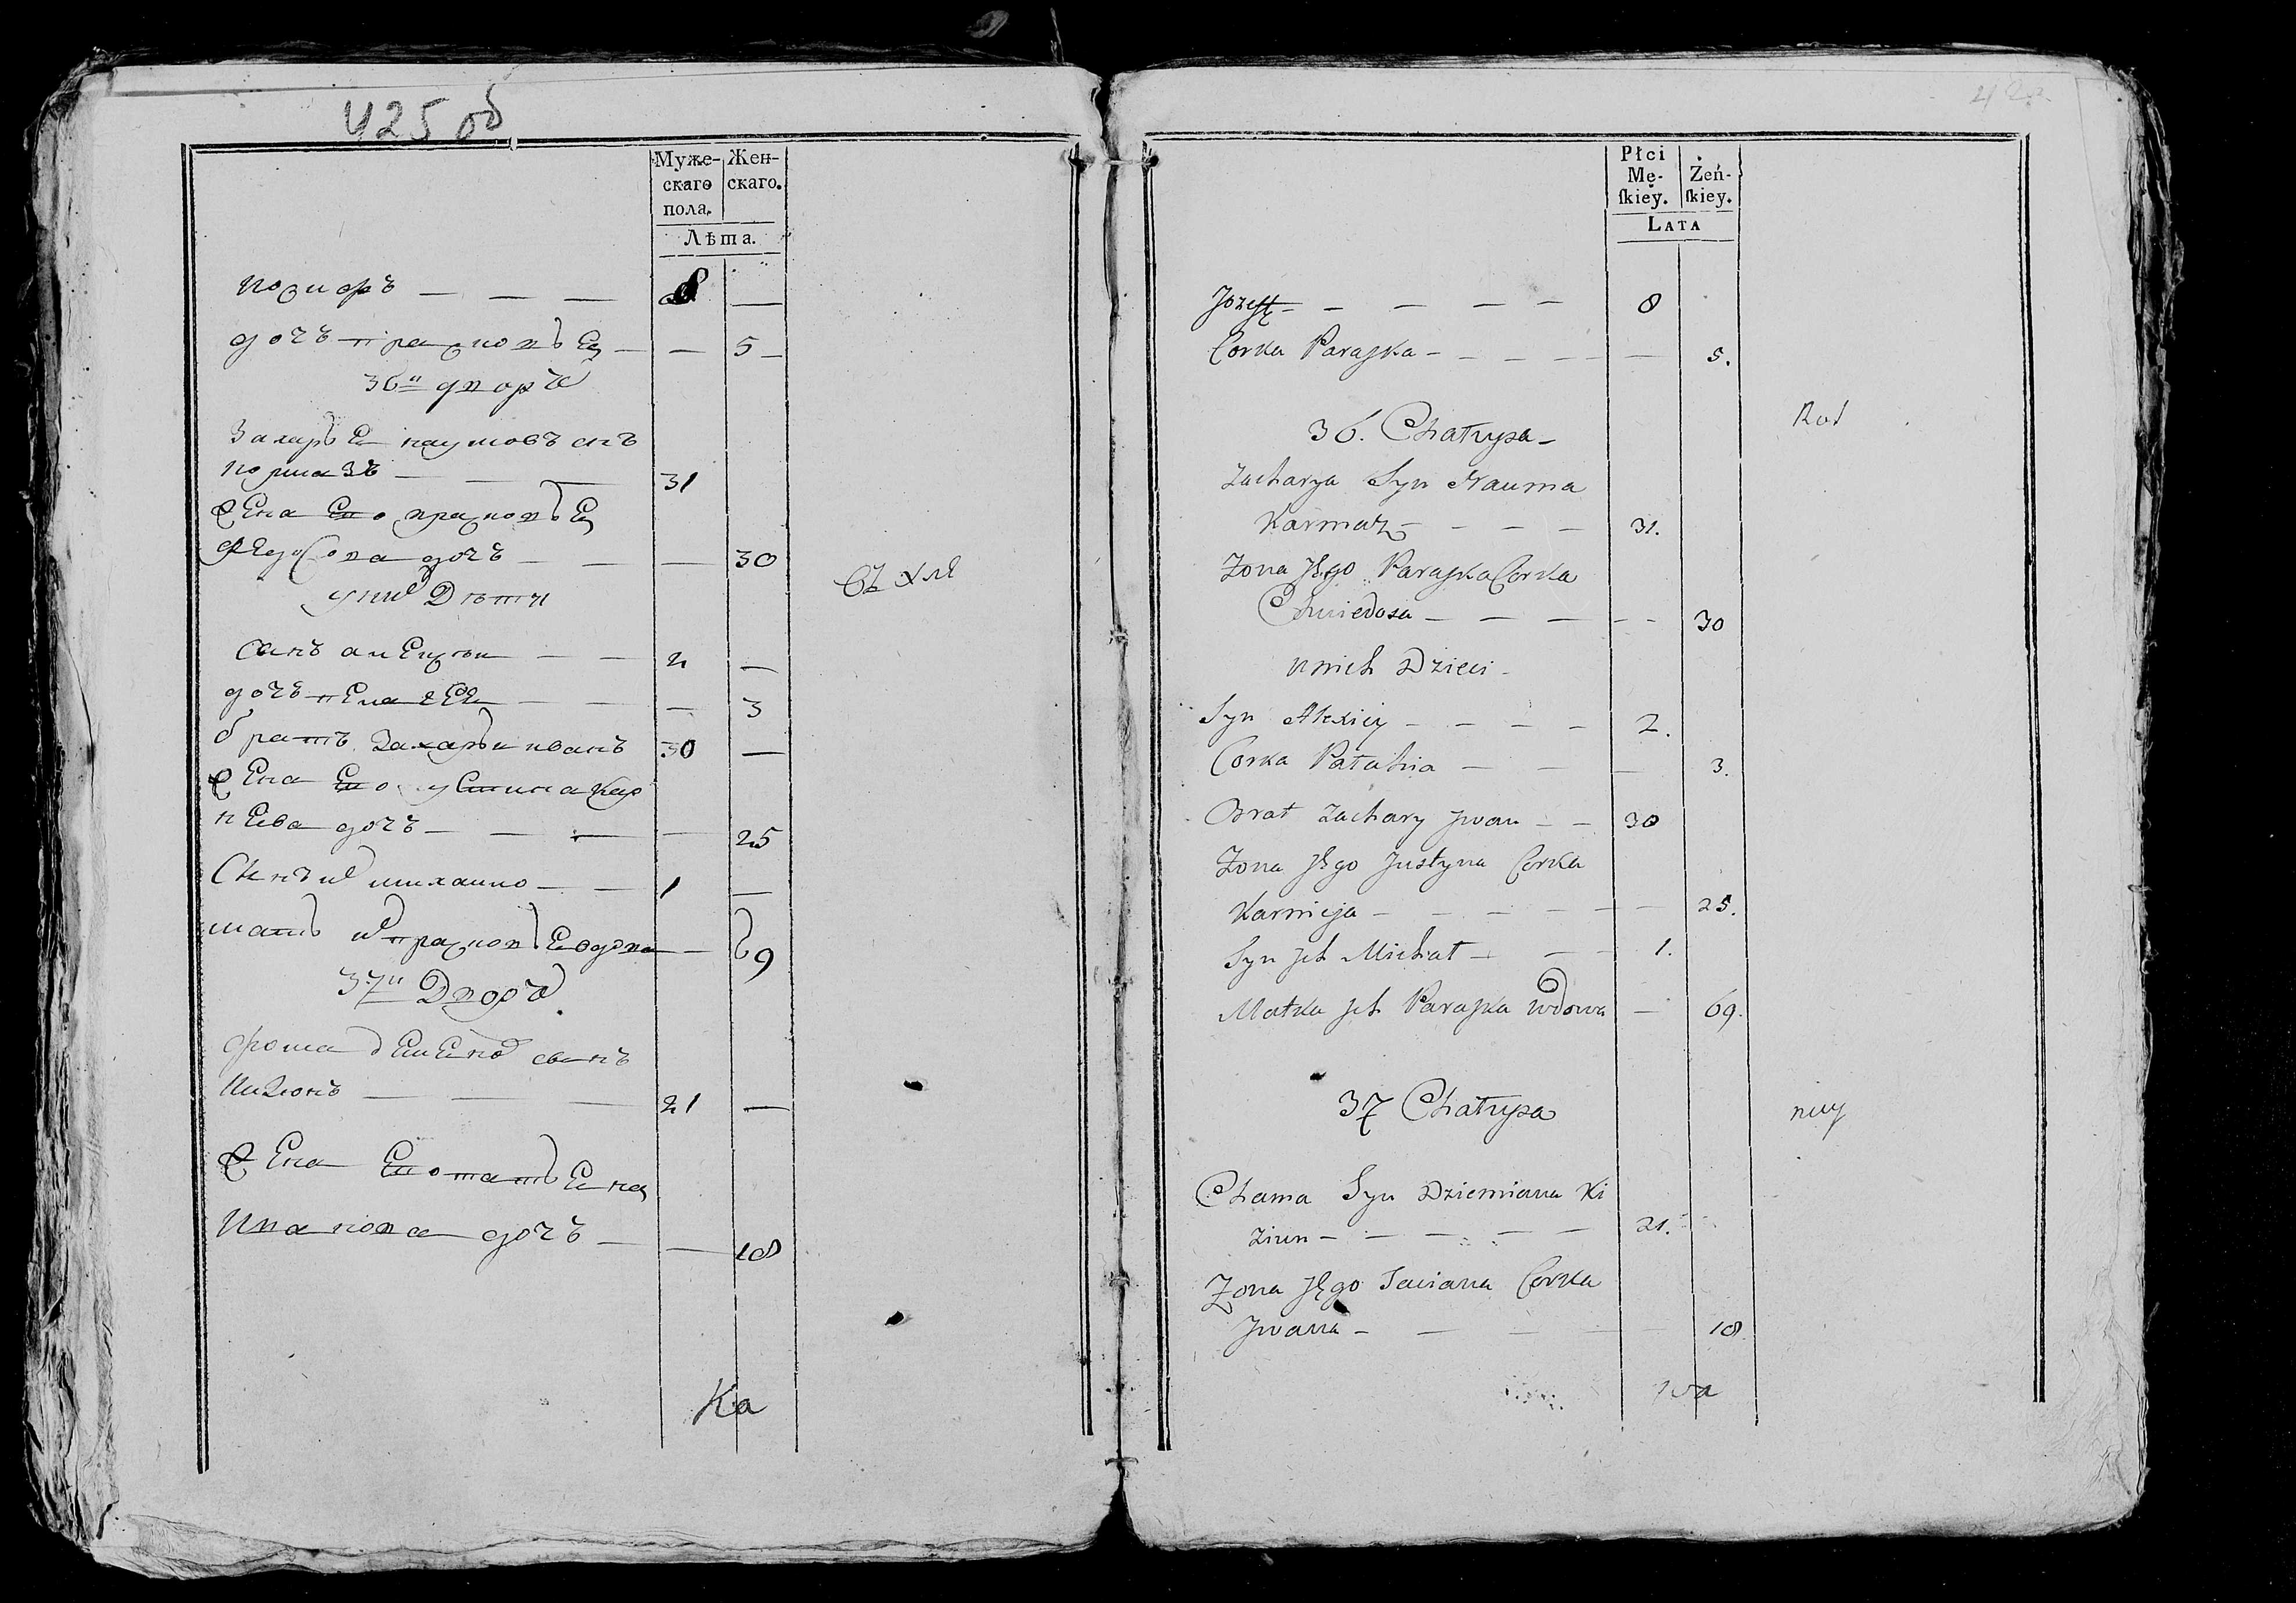 425 об
Муже- Жен-
скаго скаго.
пола.
Лѣта.
иозифъ — — — 8 —
дочь прасковья — — 5 —
36й дворъ
Захарья наумовъ снъ
кормазъ — — 31
жена его прасковья
Федосова дочь — — — 30
у них Дѣти
сынъ алексѣй — — 2 —
дочь пелагея — — — 3
братъ Захарьи иванъ 30 —
жена его устина кар
нѣева дочь — — — — 25
Сынъ их михайло — — 1 —
мать их прасковья вдова — 69
37й Дворъ
фома демянов сынъ
кизюнъ — — — 21 —
жена его татьена
Иванова дочь — — 18
Ка
Płci Żeń-
Mę- ſkiey.
ſkiey.
LATA
Jozeff — — — — — 8
Corka Paraska — — — — — — 5.
36. Chałupa —
Rod
Zacharya Syn Nauma
Karmaz — — — — 31.
Zona Jego Paraska Corka
Chwiedosa — — — — — 30
u nich Dzieci —
Syn Alexiey — — — — 2.
Corka Pałahia — — — 3.
Brat Zachary Jwan — — 30
Zona Jego Justyna Corka
Karnieja — — — — — — 25.
Syn Jch Michał — — — 1.
Matka Jch Paraska wdowa — 69.
37 Chałupa
Chama Syn Dziemiana Ki
ziun — — — — — 21.
Zona Jego Taciana Corka
Jwana — — — — — 18